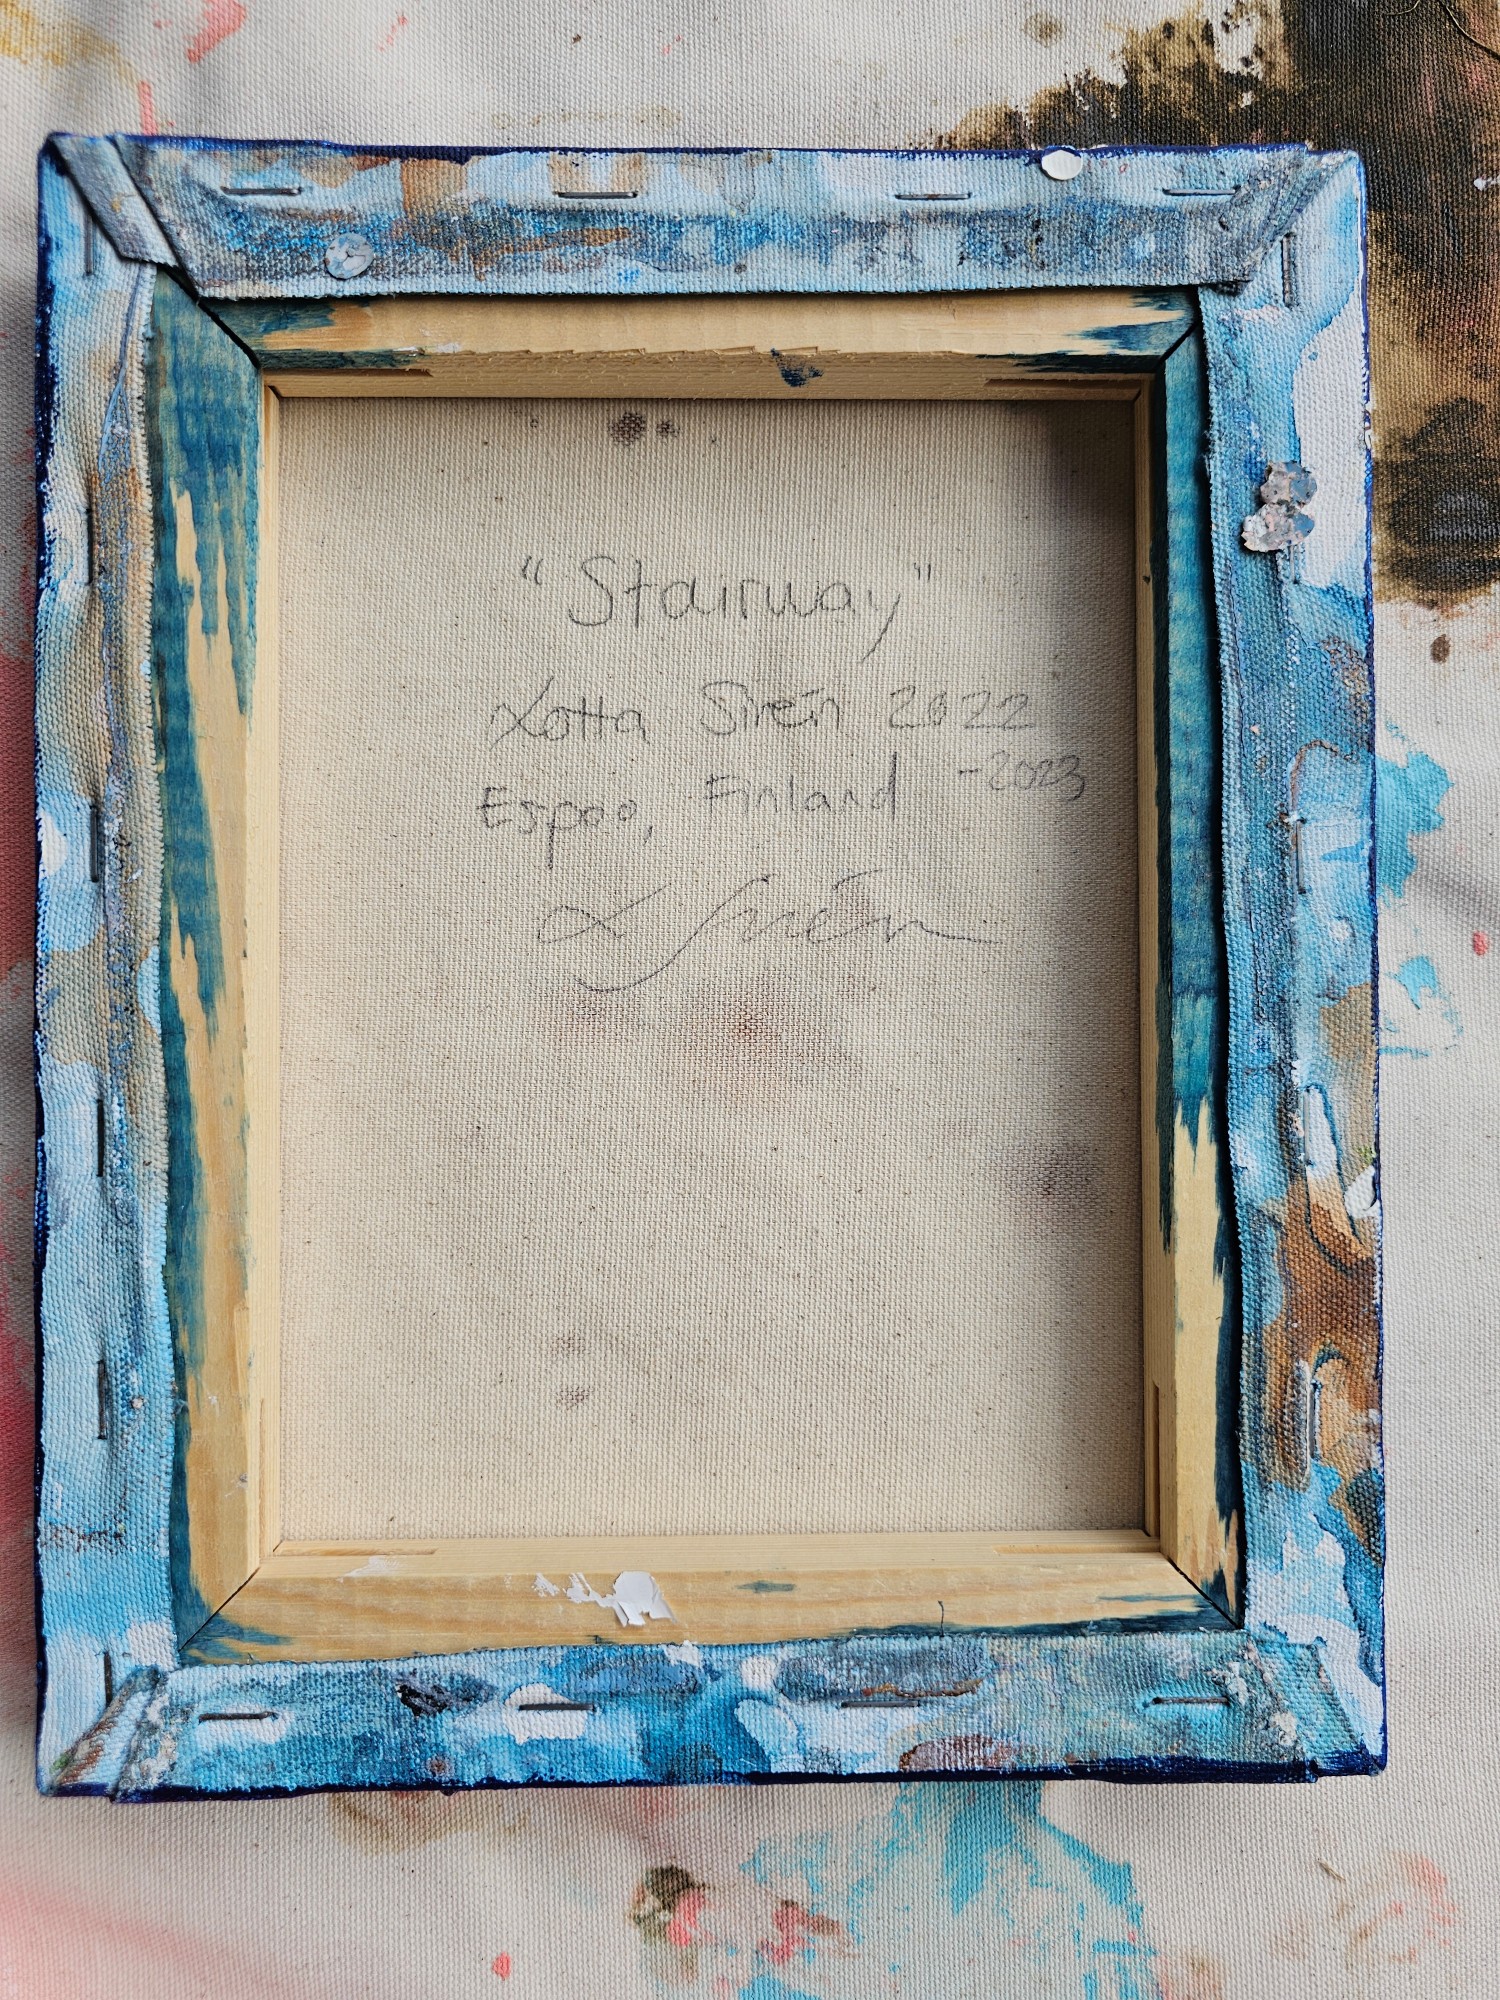 "Stairway"
Lotta Sirén 2022
-2023
Espoo, Finland
L Sirén